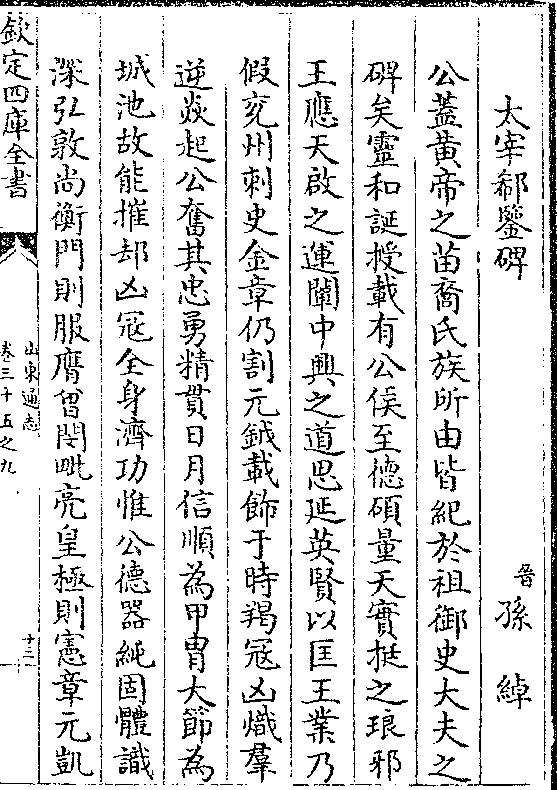 太宰郗鑒碑
晉孫綽
公蓋黃帝之苗裔氏族所由皆紀於祖御史大夫之
碑矣靈和誕授載有公侯至德碩量天實挺之琅邪
王應天啟之運闡中興之道思延英賢以匡王業乃
假兗州刺史金章仍割元鉞載飾于時羯寇凶熾羣
逆焱起公奮其忠勇精貫日月信順為甲冑大節為
城池故能摧却凶寇全身濟功惟公德器純固體識
深弘敦尚衡門則服膺曾閔毗亮皇極則憲章元凱
欽定四庫全書
山東通志
卷三十五之九
十三